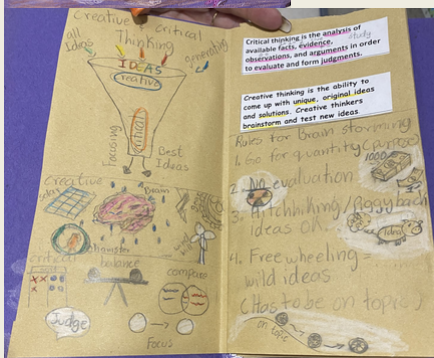 Creative & Critical
Thinking
all
Ideas
generating
IDEAS
Creative
critical
Focusing
Best
Ideas
Creative
solar
Brain
hamster
critical
balance
compare
Judge
Focus
Critical thinking is the analysis of
study
available facts, evidence,
observations, and arguments in order
to evaluate and form judgments.
Creative thinking is the ability to
come up with unique, original ideas
and solutions. Creative thinkers
brainstorm and test new ideas
Rules for Brain storming
1. Go for quantity (purpose)
1000
2. No evaluation
3. Hitchhiking/Piggyback
ideas OK
Idea
4. Free wheeling =
wild ideas
(Has to be on topic)
on topic